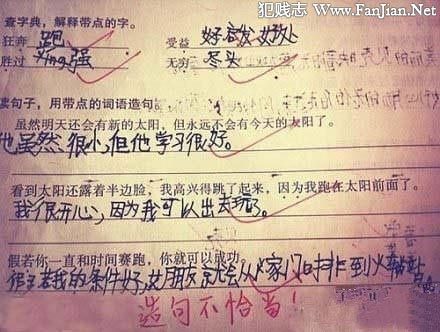 犯贱志
Www.FanJian.Net
查字典,解释带点的字。
狂奔 跑 受益 好处
胜过 xing强 无穷 尽头
读句子,用带点的词语造句。
虽然明天还会有新的太阳,但永远不会有今天的太阳了。
他虽然很小,但他学习很好。
看到太阳还露着半边脸,我高兴得跳了起来,因为我跑在太阳前面了。
我很开心,因为我可以出去玩了。
假若你一直和时间赛跑,你就可以成功。
假若我的条件好,女朋友就会从家门口排到火车站
造句不恰当!